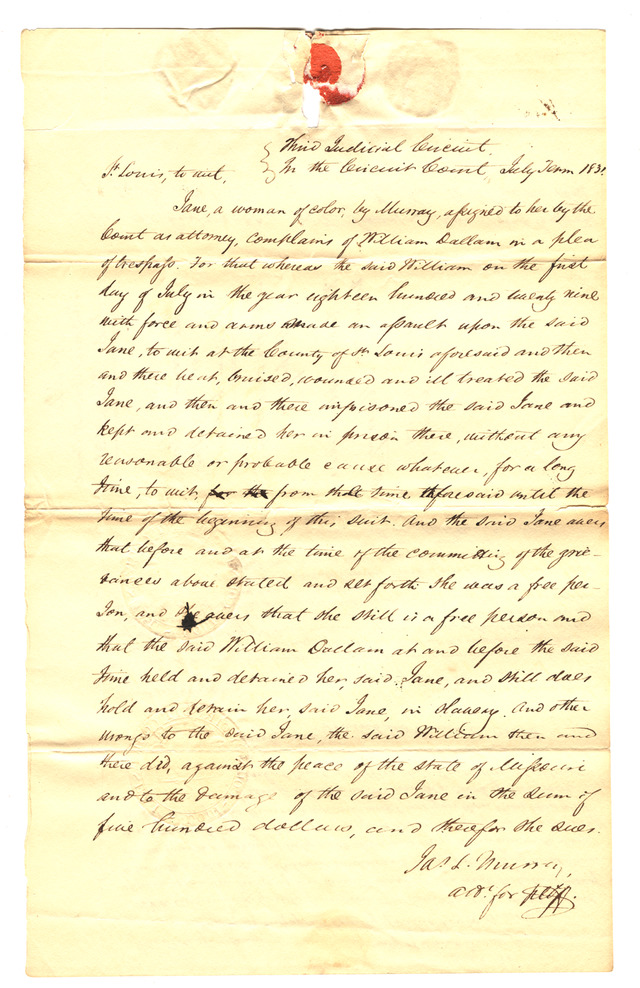 Third Judicial Circuit
St Louis, to wit, } In the Circuit Court, July Term 1831
Jane, a woman of color, by Murray, assigned to her by the
Court as attorney, complains of William Dallam in a plea
of trespass. For that whereas the said William on the first
day of July in the year eighteen hundred and twenty nine
with force and arms made an assault upon the said
Jane, to wit at the County of St Louis aforesaid and then
and there beat, bruised, wounded and ill treated the said
Jane, and then and there imprisoned the said Jane and
kept and detained her in prison there, without any
reasonable or probable cause whatever, for a long
time, to wit, for the from the time aforesaid until the
time of the beginning of this suit. And the said Jane avers
that before and at the time of the committing of the grie-
vances above stated and set forth she was a free per-
son, and avers that she still is a free person and
that the said William Dallam at and before the said
time held and detained her, said Jane, and still does
hold and detain her, said Jane, in slavery. And other
wrongs to the said Jane, the said William then and
there did, against the peace of the state of Missouri
and to the damage of the said Jane in the sum of
five hundred dollars, and therefor she sues.
Jas L. Murray,
atty for pltff.